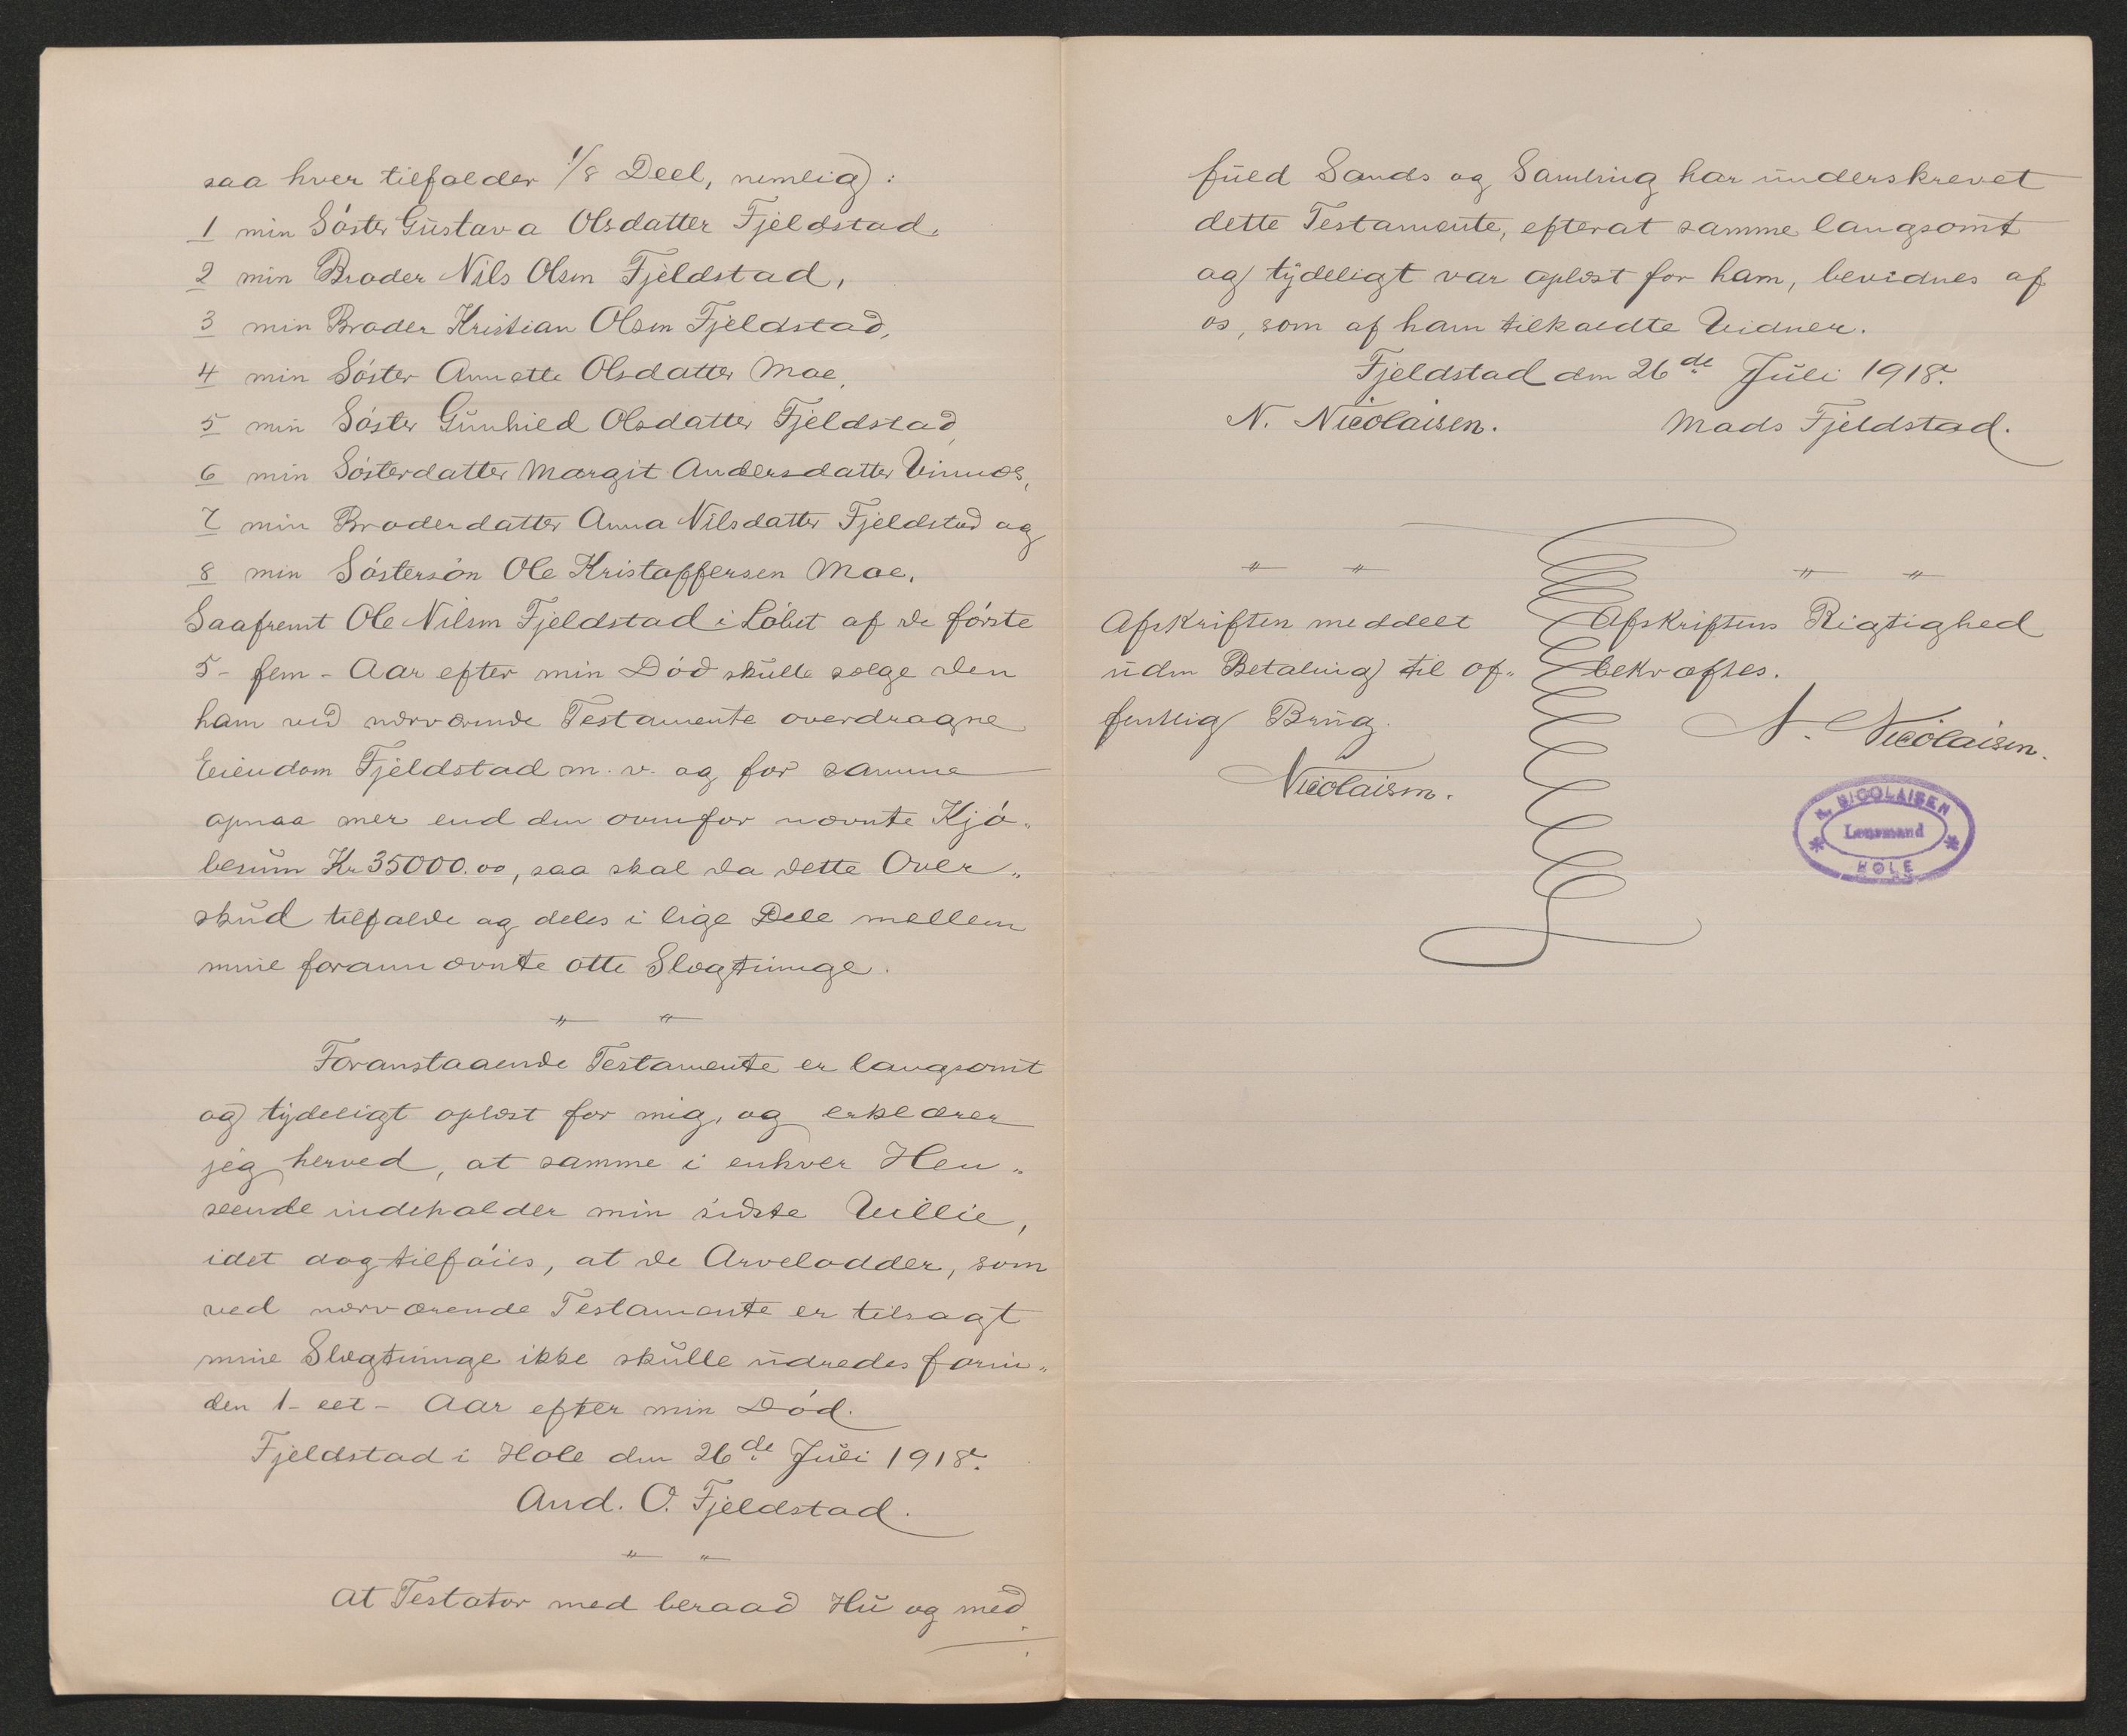 saa hver tilfalder 1/8 Deel, nemlig:
1 min Söster Gustava Olsdatter Fjeldstad,
2 min Broder Nils Olsen Fjeldstad,
3 min Broder Kristian Olsen Fjeldstad,
4 min Söster Annette Olsdatter Moe,
5 min Söster Gunhild Olsdatter Fjeldstad,
6 min Sösterdatter Margit Andersdatter
7 min Broderdatter Anna Nilsdatter Fjeldstad og
8 min Söstersön Ole Kristoffersen Moe.
Saafremt Ole Nilsen Fjeldstad i Löbet af de förste
5 - fem - Aar efter min Död skulle sælge den
ham ved nærværende Testamente overdragne
Eiendom Fjeldstad m. v. og for samme
opnaa mer end den ovenfor nævnte Kjö„
besum Kr 35000.00, saa skal da dette Over„
skud tilfalde og deles i lige Dele mellem
mine forannævnte otte Slægtninge.
" "
Foranstaaende Testamente er langsomt
og tydeligt oplæst for mig, og erklærer
jeg herved, at samme i enhver Hen„
seende indeholder min sidste Villie,
idet dog tilföies, at de Arvelodder, som
ved nærværende Testamente er tilsagt
mine Slægtninge ikke skulle udredes forin„
den 1 - eet - Aar efter min Död.
Fjeldstad i Hole den 26de Juli 1918.
And. O. Fjeldstad.
" "
At Testator med beraad Hu og med
fuld Sands og Samling har underskrevet
dette Testamente, efterat samme langsomt
og tydeligt var oplæst for ham, bevidnes af
os, som af ham tilkaldte Vidner.
Fjeldstad den 26de Juli 1918.
N. Nicolaisen. Mads Fjeldstad.
" " " "
Afskriften meddelt
uden Betaling til of„
fentlig Brug.
Nicolaisen.
Afskriftens Rigtighed
bekræftes.
N. Nicolaisen.
N. NICOLAISEN
Lensmand
HOLE